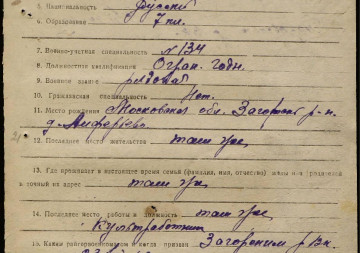 5. Национальность русский
6. Образование 7 кл.
7. Военно-учетная специальность № 134
8. Должностная квалификация Огран. годн.
9. Военное звание рядовой
10. Гражданская специальность Нет.
11. Место рождения Московская обл. Загорский р-н.
д.
12. Последнее место жительства там же
13. Где проживает в настоящее время семья (фамилия, имя, отчество) жены или родителей
и точный их адрес там же,
14. Последнее место работы и должность там же
Культработник
15. Каким райгорвоенкоматом и когда призван Загорским РВК.